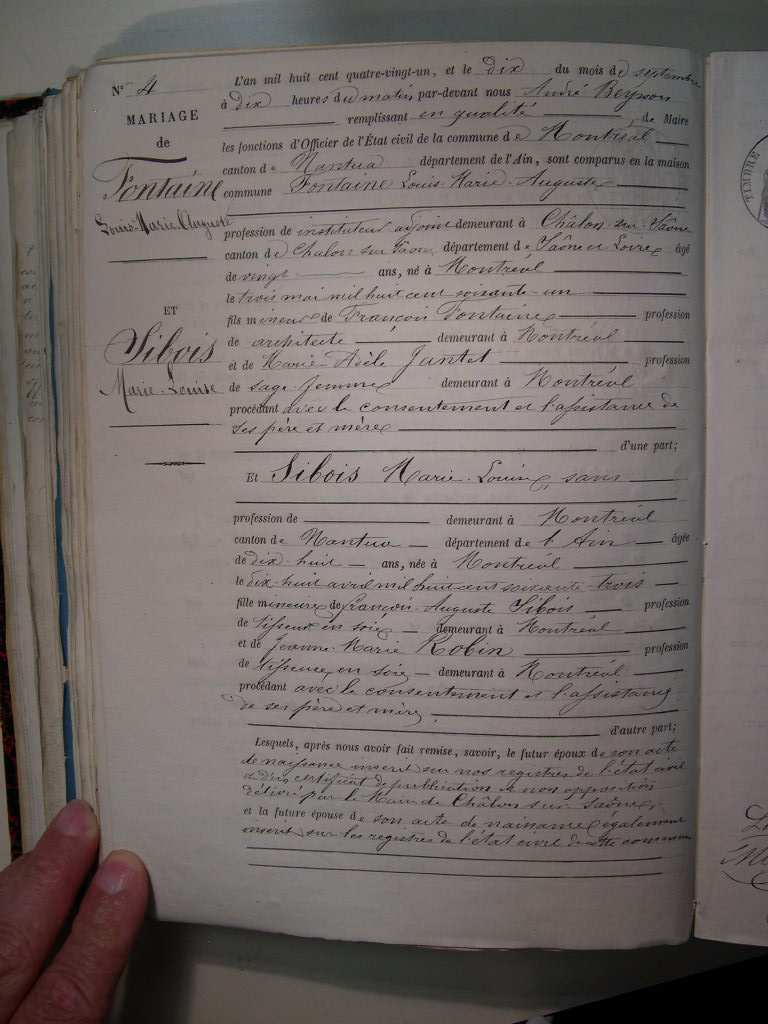 N° 4
MARIAGE
de
Fontaine
Louis-Marie Auguste
ET
Sibois
Marie-Louise
L'an mil huit cent quatre-vingt-un, et le dix du mois de septembre
à dix heures du matin, par-devant nous André Reysson
remplissant en qualité de Maire
les fonctions d'Officier de l'État civil de la commune de Montréal
canton de Nantua département de l'Ain, sont comparus en la maison
commune Fontaine Louis-Marie-Auguste
profession de instituteur adjoint demeurant à Châlon-sur-Saône
canton de Chalon sur Saône, département de Saône et Loire âgé
de vingt ans, né à Montréal
le trois mai mil huit cent soixante-un
fils mineur de François Fontaine profession
de architecte demeurant à Montréal
et de Marie-Adèle Jantet profession
de sage-femme demeurant à Montréal
procédant avec le consentement et l'assistance de
ses père et mère
d'une part;
Et Sibois Marie-Louise, sans
profession de demeurant à Montréal
canton de Nantua département de l'Ain âgée
de dix-huit ans, née à Montréal
le dix-huit avril mil huit cent soixante-trois
fille mineure de François-Auguste Sibois profession
de tisseur en soie demeurant à Montréal
et de Jeanne-Marie Robin profession
de tisseuse en soie demeurant à Montréal
procédant avec le consentement et l'assistance
de ses père et mère,
d'autre part;
Lesquels, après nous avoir fait remise, savoir, le futur époux de son acte
de naissance inscrit sur nos registres de l'état civil
et d'un certificat de publication et non opposition
délivré par le Maire de Châlon-sur-Saône,
et la future épouse de son acte de naissance également
inscrit sur les registres de l'état civil de cette commune
TIMBRE